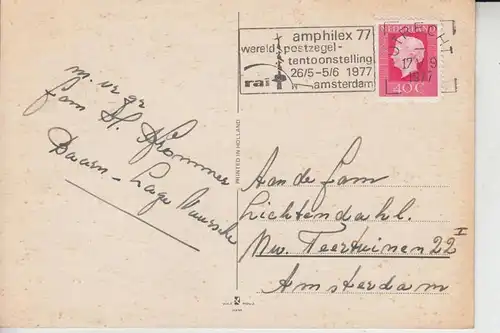 amphilex 77
wereldpostzegel-
tentoonstelling
26/5-5/6 1977
rai amsterdam
UTRECHT
17 V
1977
NEDERLAND
40 C
m. vr. gr.
fam H. Krommer
Baarn - Lage Vuursche
PRINTED IN HOLLAND
Aan de fam
Lichtendahl.
Nw. Teertuinen 22 I
Amsterdam